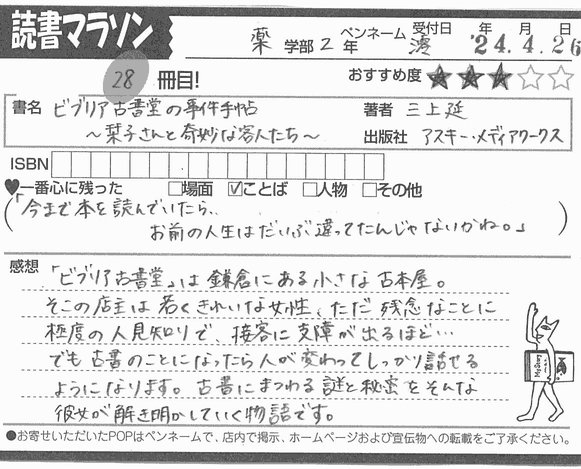 読書マラソン
薬 学部 2 年 ペンネーム 澪 受付日 '24.4.26 年 月 日
28 冊目! おすすめ度 ★★★☆☆
書名 ビブリア古書堂の事件手帖 著者 三上延
~栞子さんと奇妙な客人たち~ 出版社 アスキー・メディアワークス
ISBN
♥一番心に残った □場面 ☑ことば □人物 □その他
「今まで本を読んでいたら、
お前の人生はだいぶ違ってたんじゃないかね。」
感想 「ビブリア古書堂」は鎌倉にある小さな古本屋。
そこの店主は若くきれいな女性、ただ残念なことに
極度の人見知りで、接客に支障が出るほど…
でも古書のことになったら人が変わってしっかり話せる
ようになります。古書にまつわる謎と秘密をそんな
彼女が解き明かしていく物語です。
●お寄せいただいたPOPはペンネームで、店内で掲示、ホームページおよび宣伝物への転載をご了承ください。